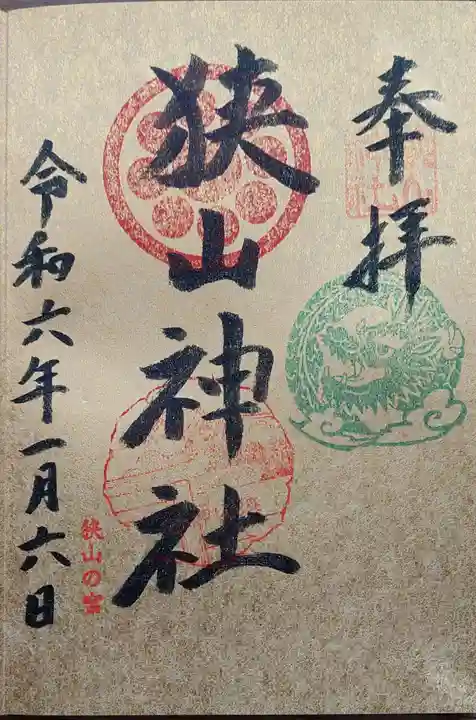 奉拝
狭山神社
令和六年一月六日
狭山の宝